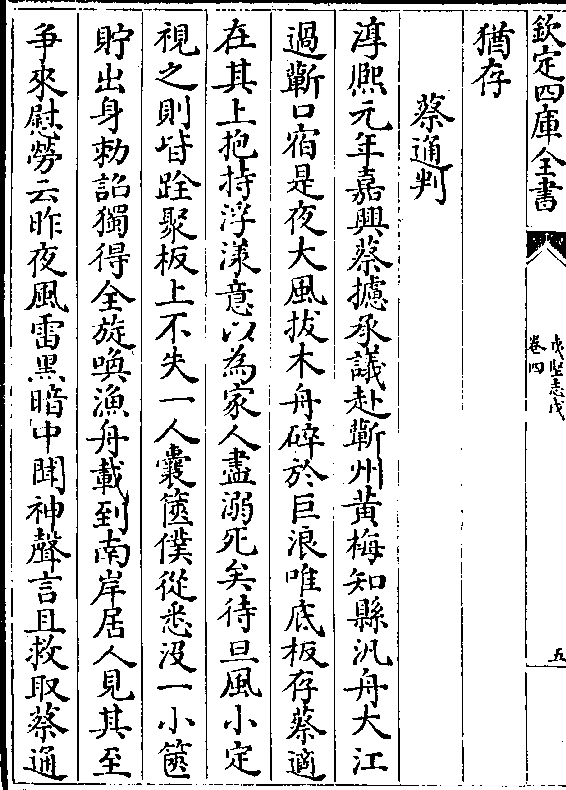 欽定四庫全書
夷堅志戊
卷四
五
猶存
蔡通判
淳熙元年嘉興蔡㯫承議赴蘄州黃梅知縣汎舟大江
過蘄口宿是夜大風拔木舟碎於巨浪唯底板存蔡適
在其上抱持浮漾意以為家人盡溺死矣待旦風小定
視之則皆跧聚板上不失一人囊篋僕從悉没一小篋
貯出身勅誥獨得全旋喚漁舟載到南岸居人見其至
爭來慰勞云昨夜風雷黑暗中聞神聲言且救取蔡通